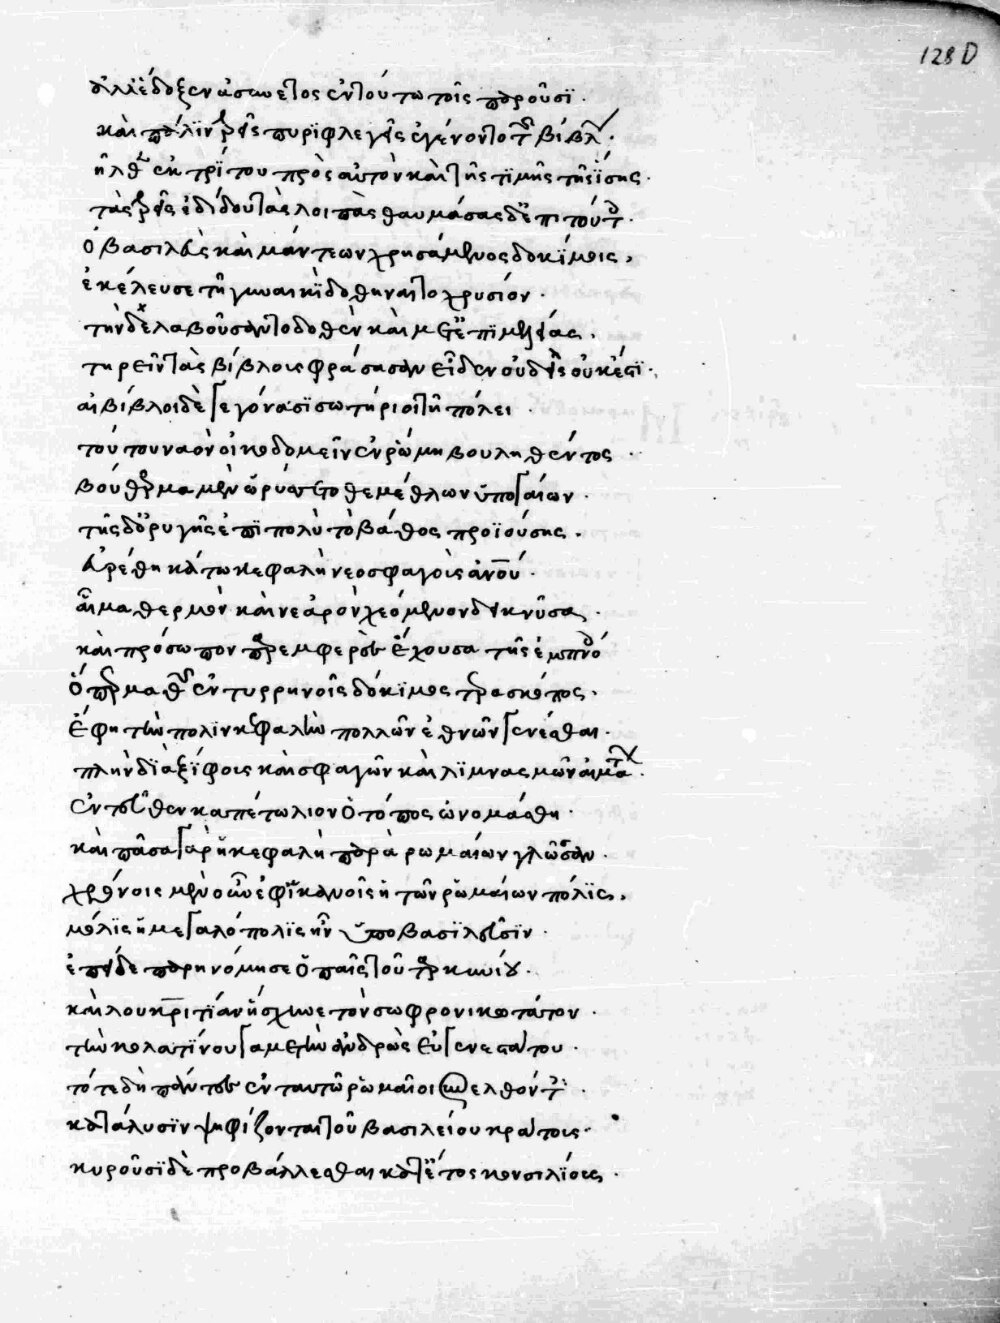 128 D
ἀλλ' ἔδοξεν ἀσύνετος ἐν τούτω τοῖς παροῦσι.
καὶ πάλιν τρεῖς πυριφλεγεῖς ἐγένοντο τῶν βίβλων.
ἦλθεν ἐκ τρίτου πρὸς αὐτὸν καὶ τῆς τιμῆς τῆς ἴσης.
τὰς τρεῖς ἐδίδου τὰς λοιπάς θαυμάσας δ' ἐπὶ τούτω.
ὁ βασιλεὺς καὶ μάντεων χρησάμενος δοκίμοις,
ἐκέλευσε τῆ γυναικὶ δοθῆναι τὸ χρυσίον.
τὴν δὲ λαβοῦσαν τὸ δοθὲν καὶ μετ' ἐπιμελείας.
τηρεῖν τὰς βίβλους φράσασαν εἶδεν οὐδεὶς οὐκέτι.
αἱ βίβλοι δὲ γεγόνασι σωτήριοι τῆ πόλει.
τούτου ναὸν οἰκοδομεῖν ἐν ῥώμη βουληθέντος.
βόθρυμα μὲν ὠρύσσετο θεμέθλων ὑπογαίων.
τῆς δ' ὀρυγῆς ἐπὶ πολὺ τὸ βάθος προϊούσης.
εὑρέθη κάτω κεφαλὴ νεοσφαγοῦς ἀνου.
αἷμα θερμὸν καὶ νεαρὸν χεόμενον δεικνῦσα,
καὶ πρόσωπον παρεμφερὲς ἔχουσα τῆς ἐμπνόου
ἐν τυρρηνοῖς δόκιμος τερασκόπος.
ἔφη τὴν πόλιν κεφαλὴν πολλῶν ἐθνῶν γενέσθαι.
πλὴν διὰ ξίφους καὶ σφαγῶν καὶ λίμνας αἱμάτων.
ἐντεῦθεν καπετώλιον ὁ τόπος ὠνομάσθη.
καὶ πᾶσα γὰρ ἡ κεφαλὴ παρὰ ῥωμαίων γλῶσσαν.
χρόνοις μὲν οὖν ἐφ' ἱκανοῖς ἡ τῶν ῥωμαίων πόλις,
μόλις ἡ μεγαλόπολις ἦν ὑπὸ βασιλεῦσιν.
ἐπεὶ δὲ παρηνόμησε ὁ παῖς τοῦ ταρκυνίου.
καὶ λουκριτίαν ἤσχυνε τὸν σωφρονικωτάτον.
τὴν κολατίνου γαμετὴν ἀνδρὸς εὐγενεστάτου.
τότε δὴ πάντες ἐν ταυτῶ ῥωμαῖοι συνελθόντες.
κατάλυσιν ψηφίζονται τοῦ βασιλείου κράτους.
κυροῦσι δὲ προβάλλεσθαι κατ' ἔτος κονσιλίους.